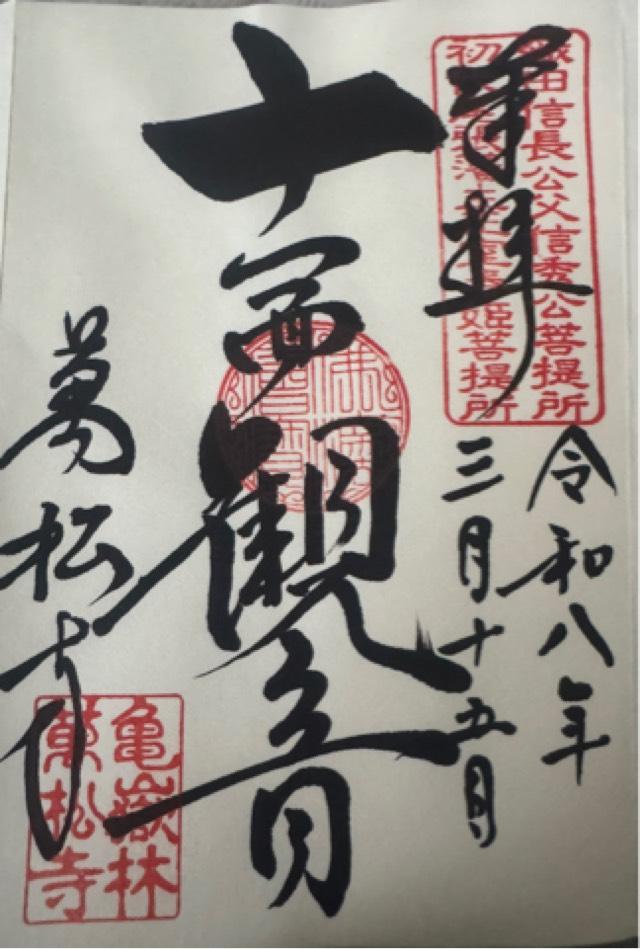 奉拝
織田信長公父信秀公菩提所
初代尾張藩主正室春姫菩提所
令和八年
三月十五日
十一面観音
萬松寺
亀嶽林
萬松寺